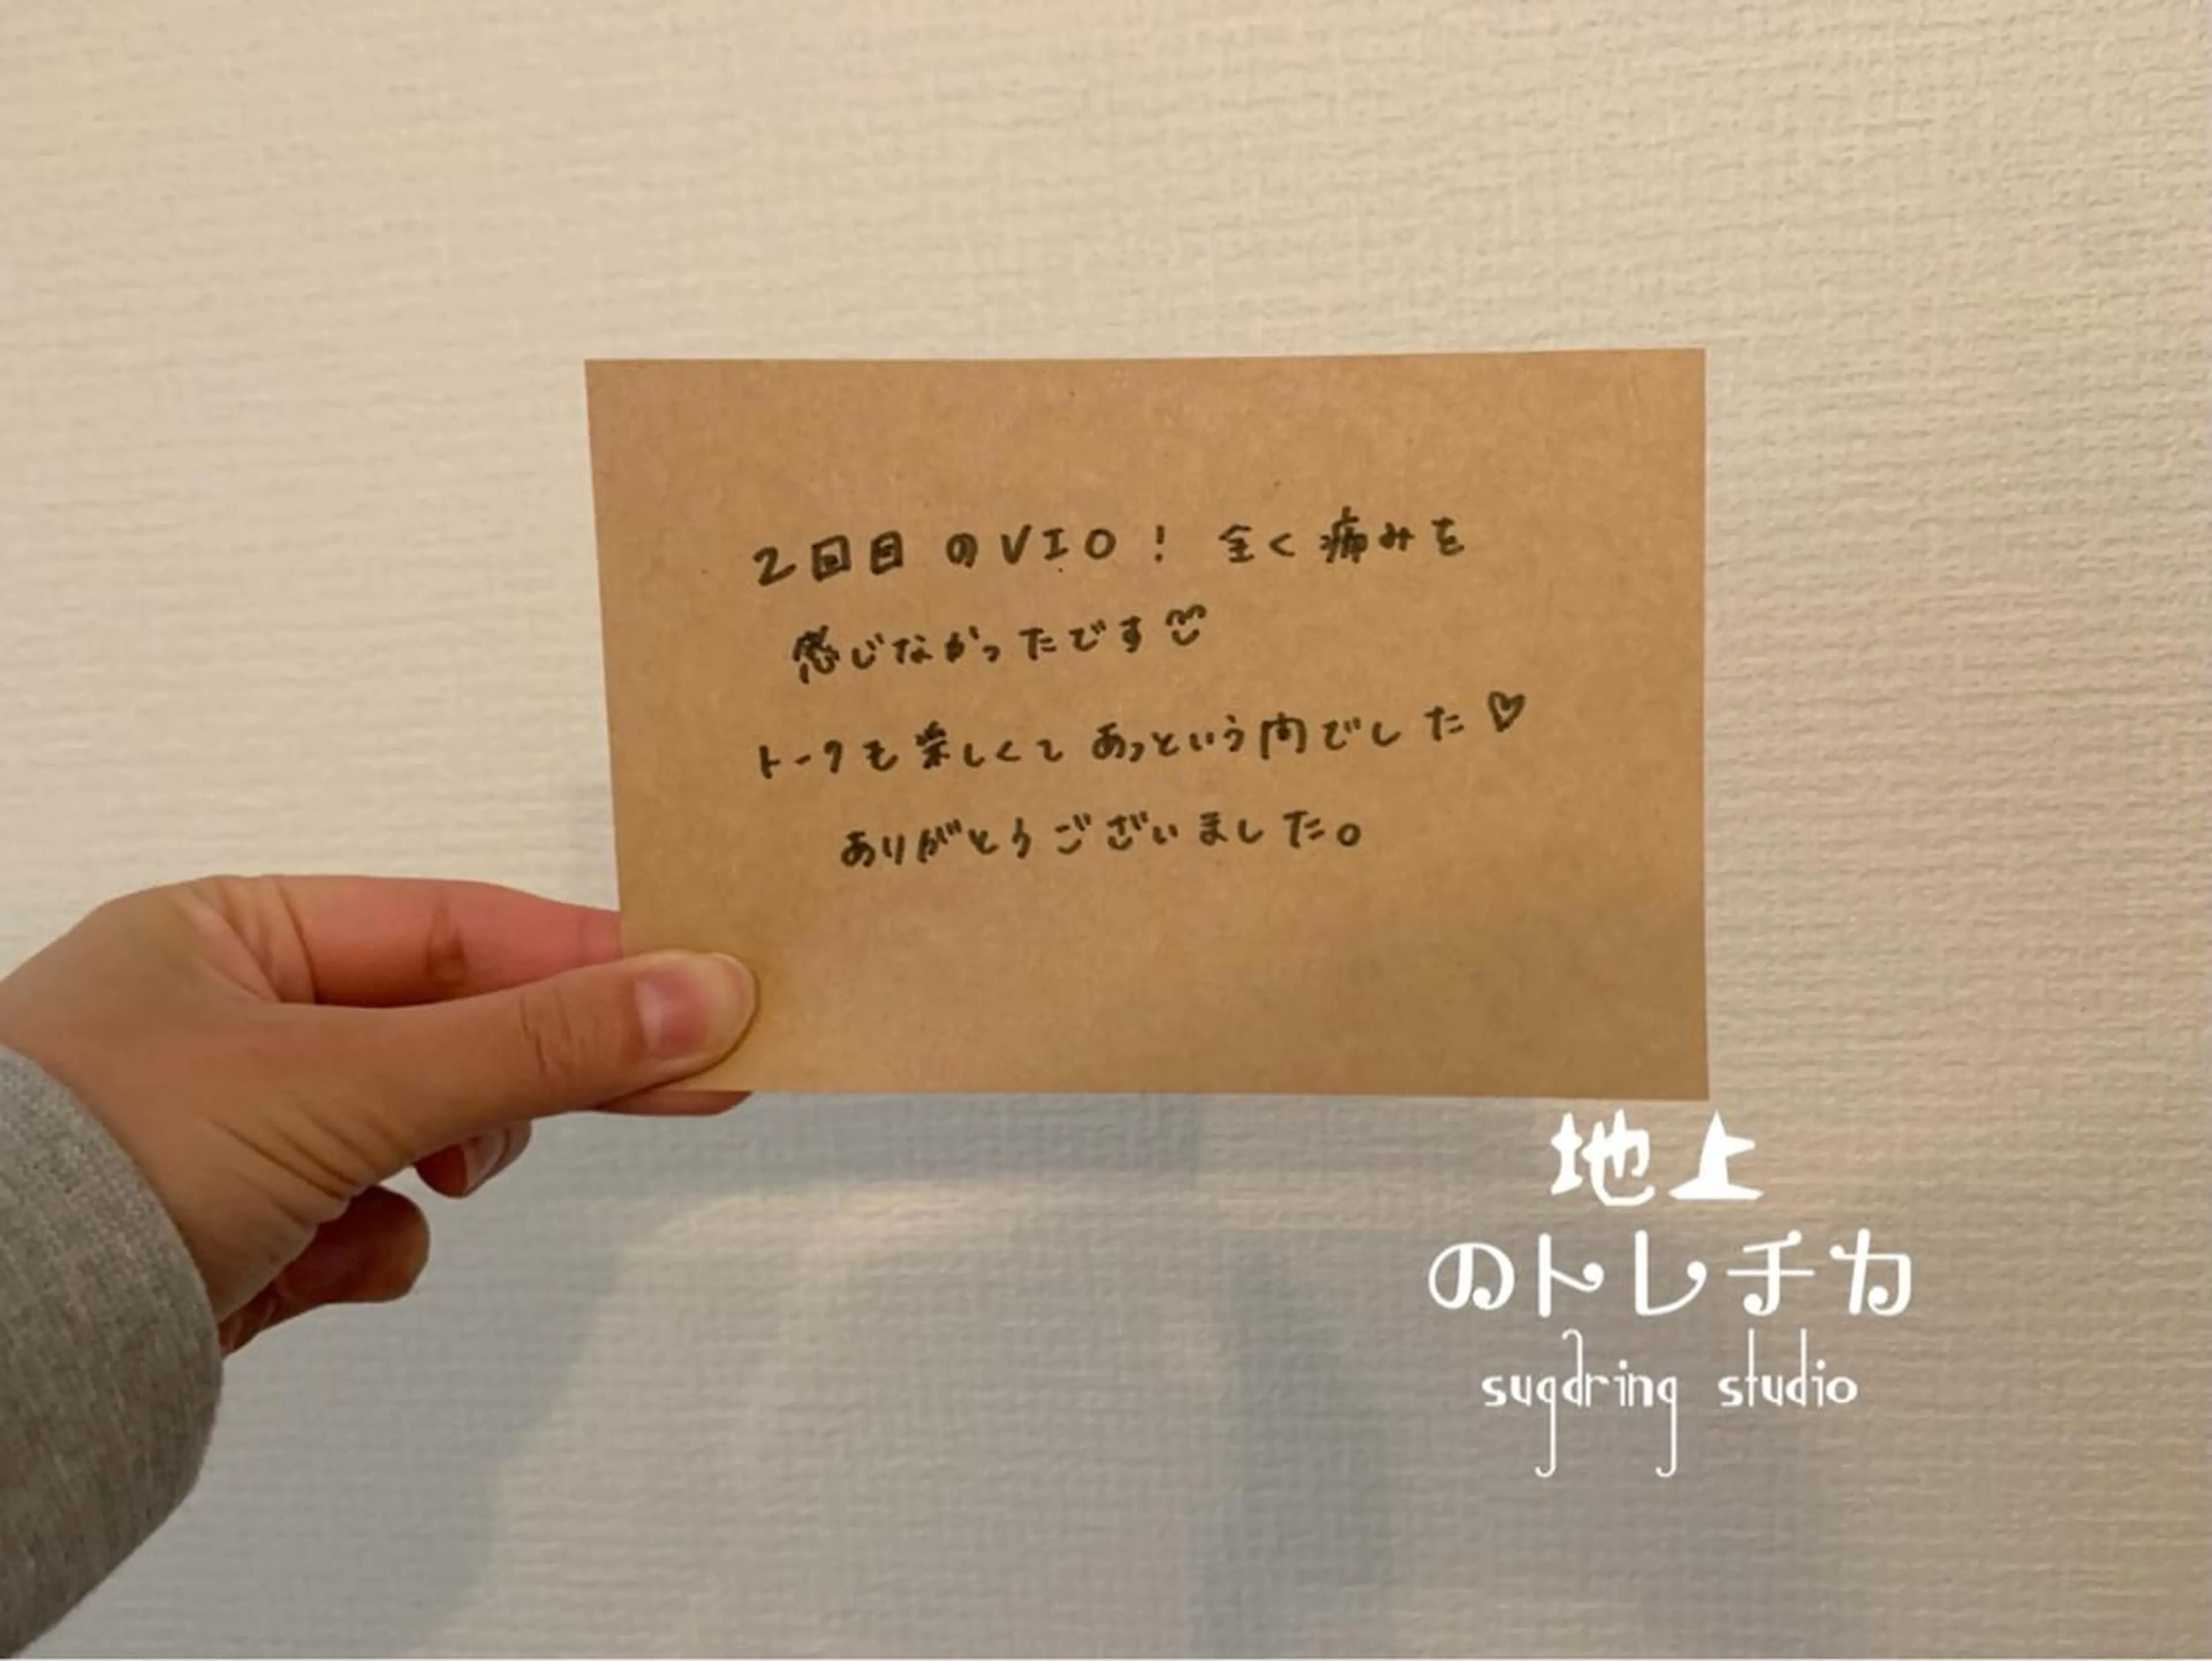 2回目のVIO! 全く痛みを
感じなかったです
トークも楽しくて あっという間でした♡
ありがとうございました。
地上
のトレチカ
sugaring studio